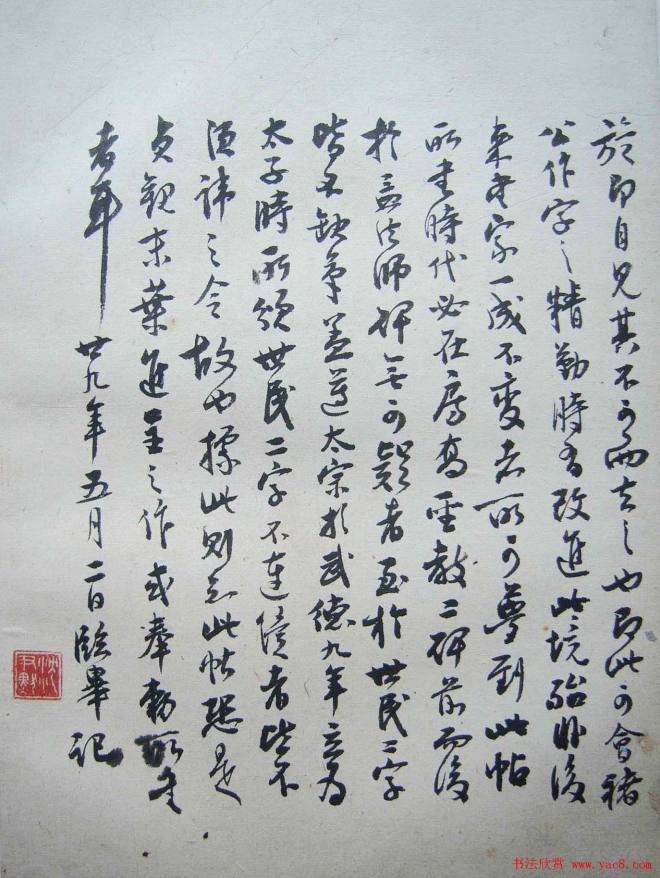 旋即自見其不可而去之也即此可會褚
公作字之精勤時有改進此境殆非後
來書家一成不變者所可夢到此帖
所書時代必在房高聖教二碑前而後
於孟法師碑無可疑者至於世民二字
皆不缺筆蓋遵太宗於武德九年立為
太子時所頒世民二字不連續者皆不
須諱之令故也據此則知此帖恐是
貞觀末葉進呈之作或奉勅所書
者耳 廿九年五月二日臨畢記
沈尹默
书法欣赏 www.yac8.com